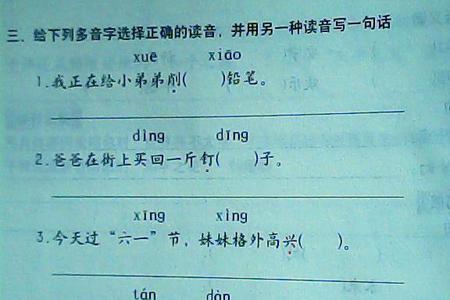 三. 给下列多音字选择正确的读音,并用另一种读音写一句话
xuē xiāo
1.我正在给小弟弟削( )铅笔。
dìng dīng
2.爸爸在街上买回一斤钉( )子。
xīng xìng
3.今天过“六一”节,妹妹格外高兴( )。
tán dàn